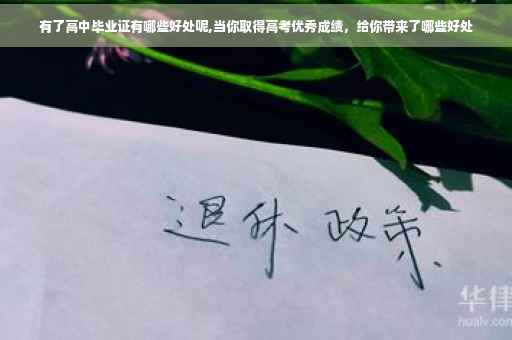 有了高中毕业证有哪些好处呢,当你取得高考优秀成绩，给你带来了哪些好处
退休 政策
华律
hualv.com